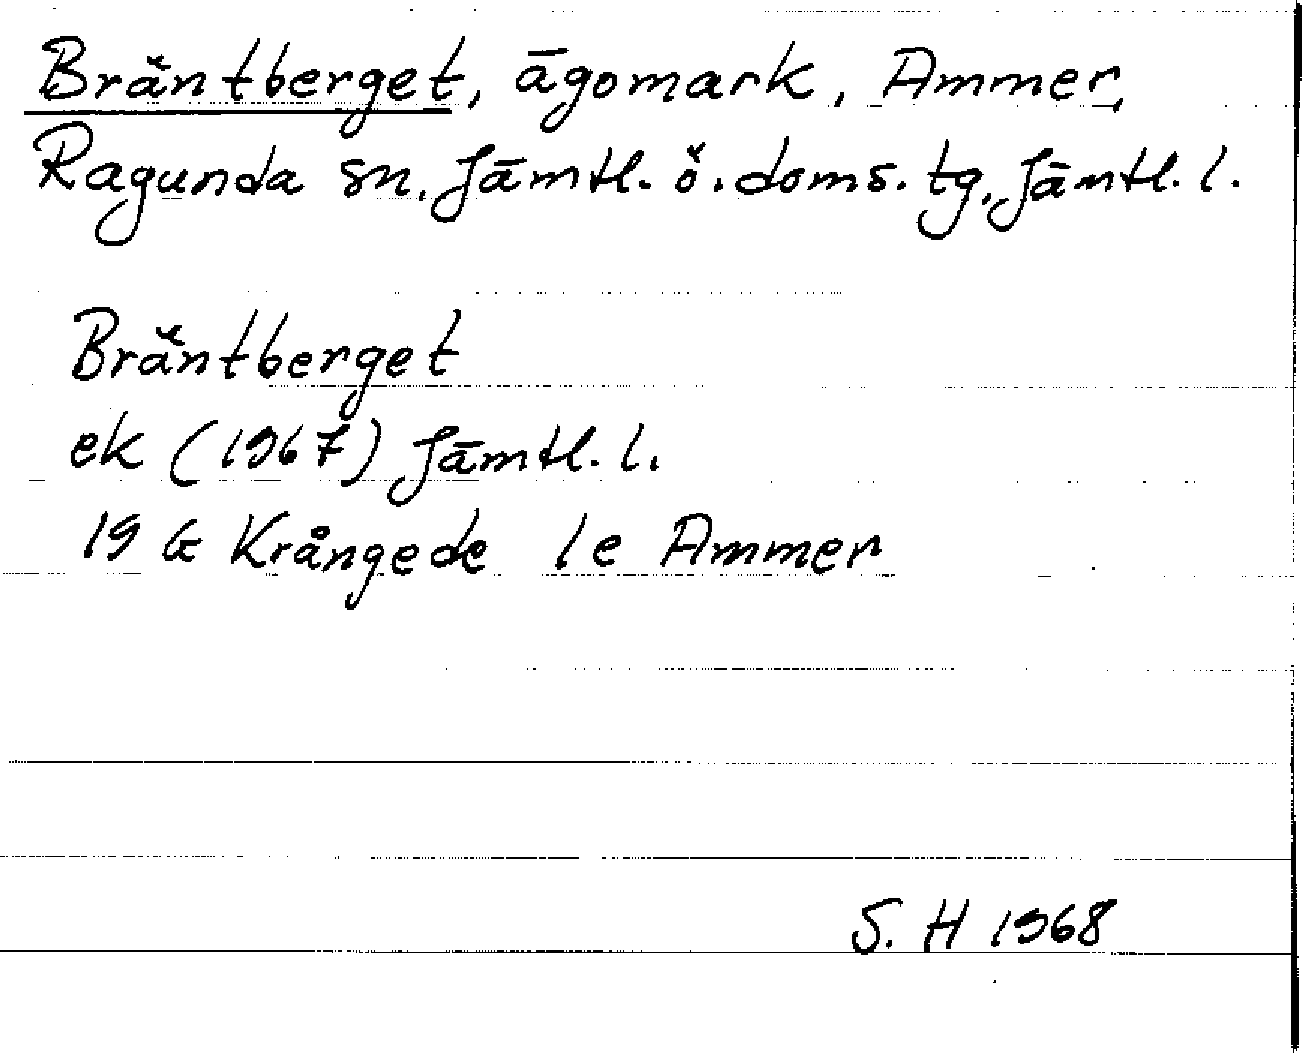 Bräntberget, ägomark, Ammer,
Ragunda sn. Jämtl. ö. doms. tg. Jämtl. l.
Bräntberget
ek (1967) Jämtl. l.
19 G Krångede 1e Ammer
S. H 1968